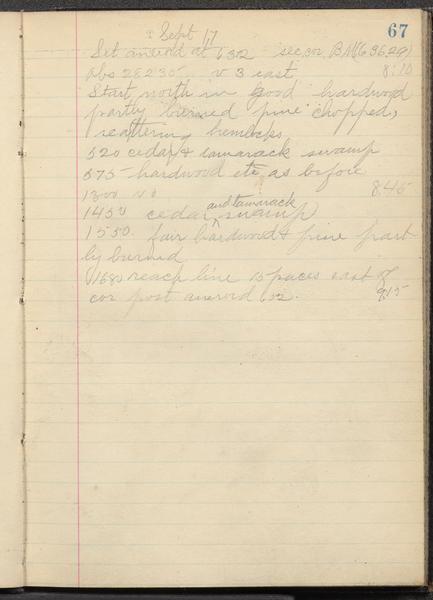 67
Sept 17
Set aneroid at 632 sec cor BM (636.29)
obs 28235 v 3 east 8:10
Start north in good hardwood
partly burned pine chopped,
scattering hemlocks
520 cedar & tamarack swamp
575 hardwood etc as before
1300 v 0 8.45
1450 cedar and tamarack swamp
1550. fair hardwood & pine part
ly burned
1680 reach line 15 paces east of
cor post aneroid 9:15